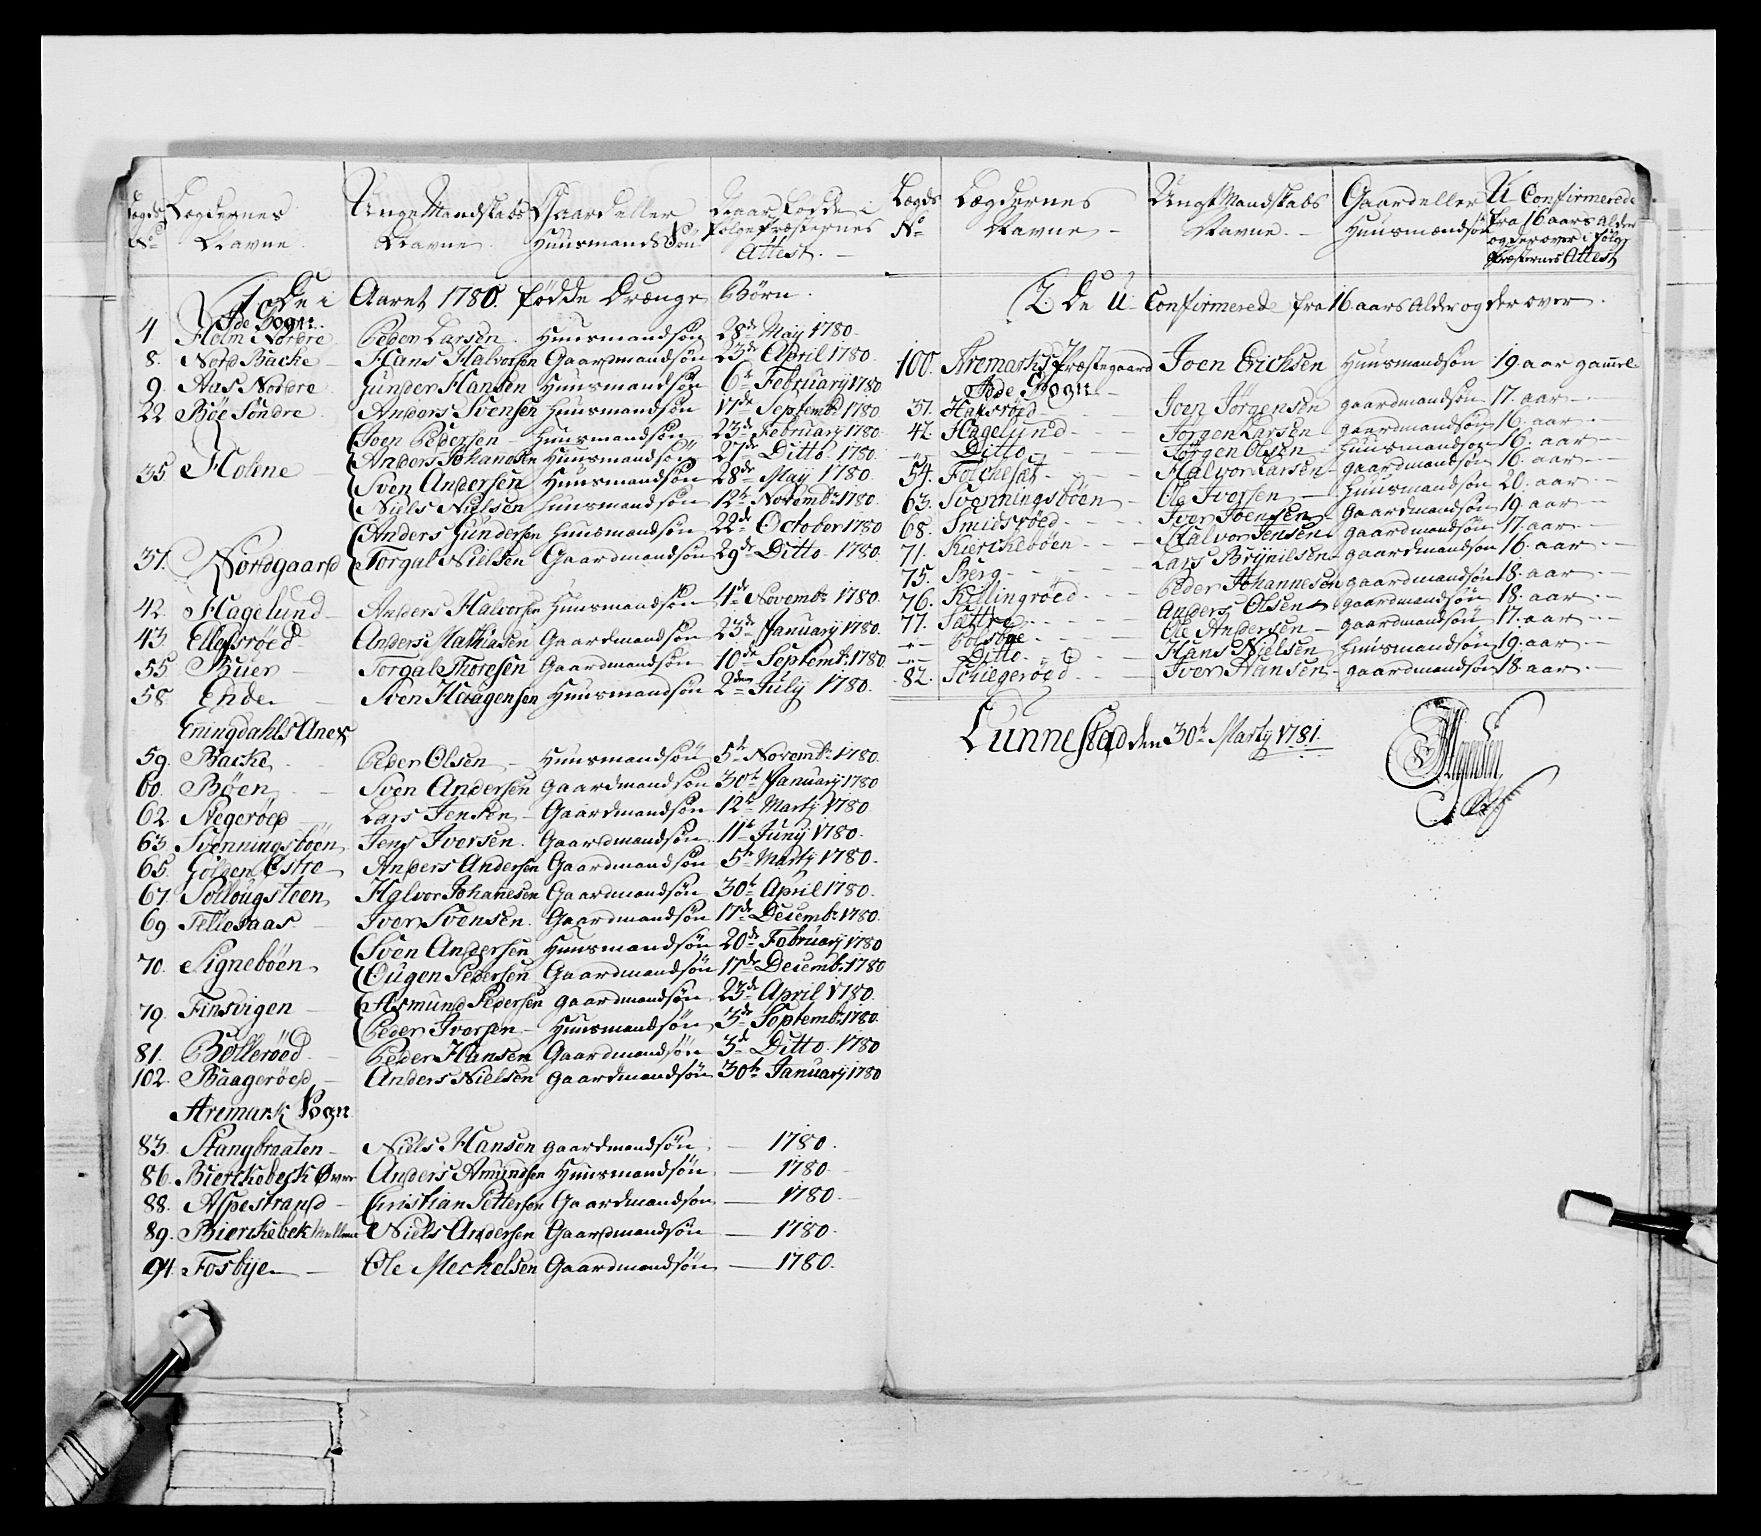 Lægds No Lægdernes Navne Unge Mandskabs Navne Gaard eller Huusmands Søn De aar fødde i følge Præsternes Attest.
1. De i Aaret 1780. fødde Drænge Børn.
Ide Sogn.
4 Holm Nordre Peder Larsen Huusmandsøn 28de May 1780.
8. Nord Backe Hans Halvorsen Gaardmandsøn 23de April 1780.
9. Aas Nordre Gunder Hansen Huusmandsøn 6te February 1780
22 Böe Söndre Anders Svensen Huusmandsøn 17de Septembr 1780.
Joen Pedersen Huusmandsøn 23de February 1780.
Anders Johannesen Huusmandsøn 27de Ditto. 1780.
35 Holene Sven Andersen Huusmandsøn 28de May 1780.
Niels Nielsen Huusmandsøn 12te Novembr 1780.
Anders Gundersen Huusmandsøn 22de October 1780
37. Nordgaard Torgal Nielsen Gaardmandsøn 29de Ditto. 1780.
42. Hagelund Anders Halvorsen Huusmandsøn 4de Novembr 1780.
43. Ellefsröed Anders Mathiasen Gaardmandsøn 23de January 1780.
55 Buer Torgal Thoresen Gaardmandsøn 10de Septembr 1780.
58. Ende Sven Haagensen Huusmandsøn 2den July 1780.
Eningdahls Anex
59. Backe Peder Olsen Huusmandsøn 5te Novembr 1780.
60. Böen Sven Andersen Gaardmandsøn 30te January 1780
62. Stegeröed Lars Jensen Gaardmandsøn 12te Marty 1780
63. Svenningsböen Jens Iversen. Gaardmandsøn 11te Juny 1780.
65. Gölpen Østre Anders Andersen Gaardmandsøn 5te Marty 1780.
67. Sollougsteen Halvor Johannesen Gaardmandsøn 30te April 1780.
69. Tellesaas Iver Svensen. Gaardmandsøn 17de Decembr 1780.
Sven Andersen Huusmandsøn 20de February 1780
70. Signeböen Ougen Pedersen Gaardmandsøn 17de Decembr 1780
79. Finsvigen Asmund Pedersen Gaardmandsøn 23de April 1780.
Peder Iversen Huusmandsøn 3de Septembr 1780.
81. Bölleröed Peder Hansen Gaardmandsøn 3de Ditto. 1780
102. Baageröed Anders Nielsen Gaardmandsøn 30te January 1780
Aremark Sogn
83. Stangbraaten Niels Hansen Gaardmandsøn 1780.
86. Bierckebeck Øvre Anders Amundsen Huusmandsøn 1780
88. Aspestrand Cristian Pettersen Gaardmandsøn 1780.
89. Bierckebek Mellem Niels Andersen Gaardmandsøn 1780.
94. Fosbye Ole Mechelsen Gaardmandsøn 1780.
Lægds No Lægdernes Navne Ungt Mandskabs Navne. Gaard eller Huusmændsøn U Confirmerede fra 16 aars alder og der over i følge Præsternes Attest
2. De U Confirmerede fra 16 aars Alder og der over.
100. Aremarks Præstegaard Joen Erichsen Huusmandsøn 19 aar gammel
Idde Sogn
37. Hafsröed Iver Jörgensen Gaardmandsøn 17. aar
42. Hagelund Jörgen Larsen Gaardmandsøn 16. aar
Ditto Jörgen Olsen Huusmandsøn 16. aar
54. Folckesat Halvor Larsen Gaardmandsøn 16. aar
63. Svenningsböen Ole Iversen Huusmandsøn 20. aar
68. Smidsröed Iver Joensen Gaardmandsøn 19. aar
71. Kierckeböen Halvor Jensen Gaardmandsøn 17. aar
75. Berg Lars Brynilsen Gaardmandsøn 16. aar
76. Killingröed Peder Johannesen Gaardmandsøn 18. aar
77. Sættre Anders Olsen Gaardmandsøn 18. aar
Ole Andersen Gaardmandsøn 17. aar
Ditto. Hans Nielsen Huusmandsøn 19. aar
82. Schegeröed Iver Hansen Gaardmandsøn 18. aar
Lunnestad den 30te Marty 1781.